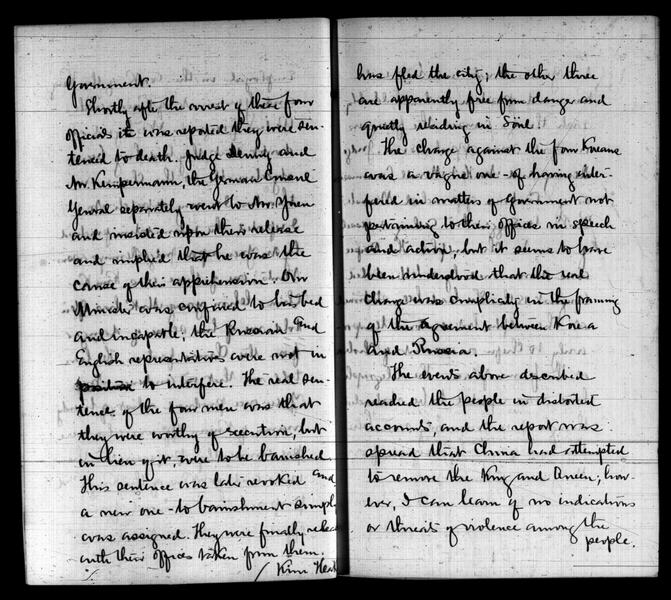 Government.
Shortly after the arrest of these four
officials it was reported they were sen-
tenced to death. Judge Denny and
Mr. Kempermann, the German Consul
General separately went to Mr. Yuen
and insisted upon their release
and implied that he was the
cause of their apprehension. Our
Minister was confined to his bed
and incapable; the Russian and
English representatives were not in
position to interfere. The real sen-
tence, of the four men was that
they were worthy of execution, but
in lieu of it, were to be banished
This sentence was later revoked and
a new one - to banishment simple
was assigned. They were finally released
with their offices taken from them.
/ Kim
has fled the city; the other three
are apparently free from danger and
quietly residing in Söul.
The charge against the four Koreans
was a vague one - of having inter-
fered in matters of Government not
pertaining to their offices in speech
and action, but it seems to have
been understood that the real
charge was complicity in the framing
of the agreement between Korea
and Russia.
The events above described
reached the people in distorted
accounts, and the report was
spread that China had attempted
to remove the King and Queen; how-
ever, I can learn of no indications
or threats of violence among the
people.